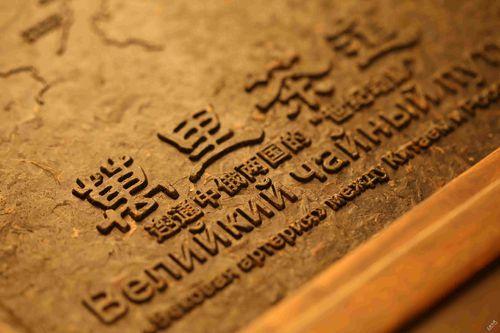 萬里茶
沟通中俄两国的“世纪动脉”
Велийкий чайный пут
Вековая артерия» между Китаем и Рос